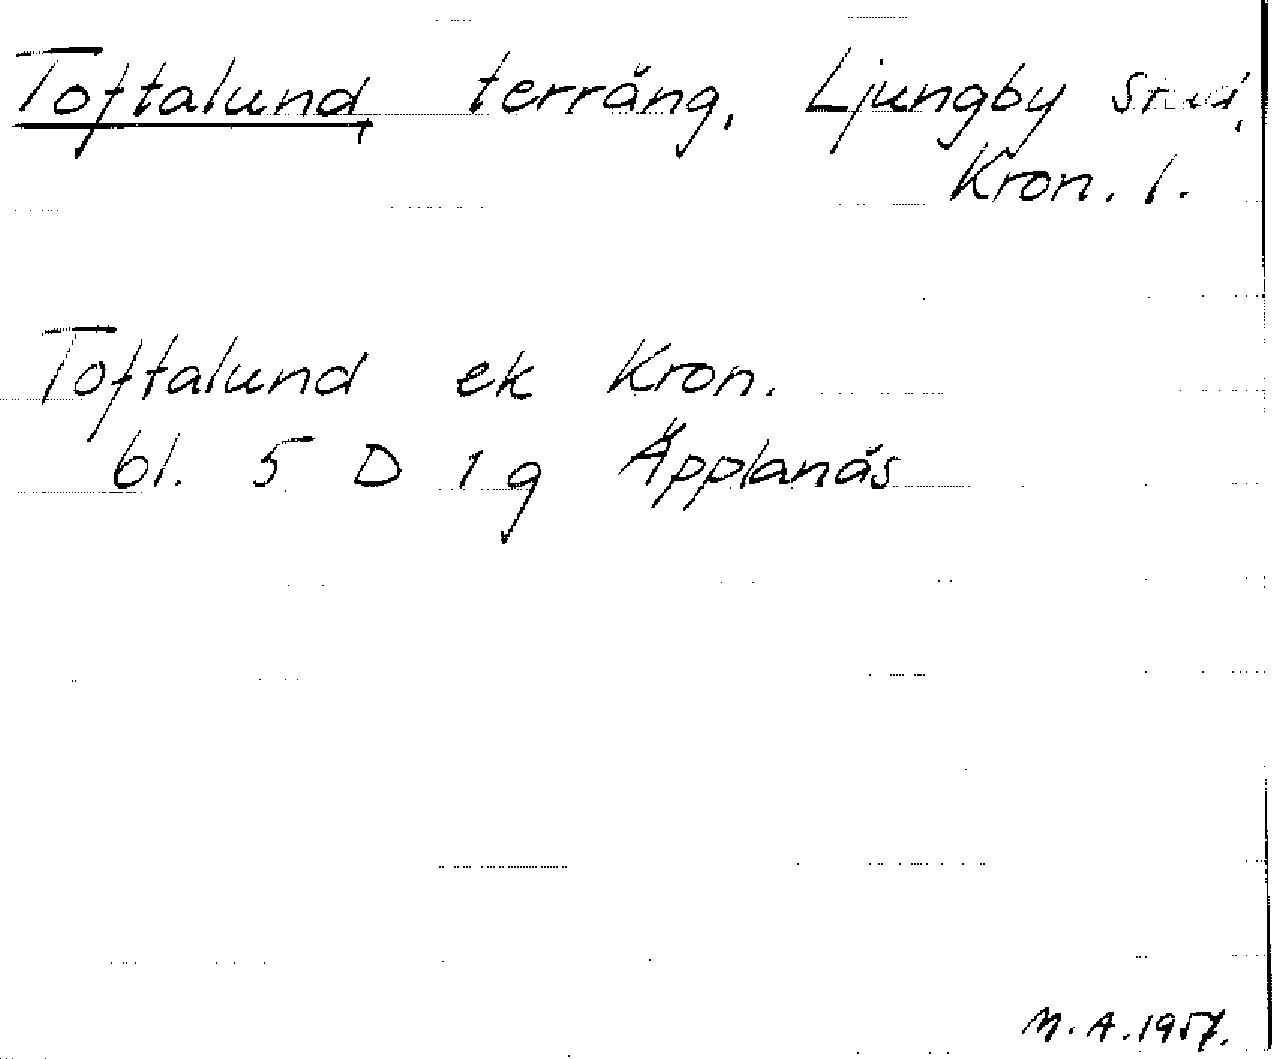 Toftalund, terräng, Ljungby stad,
Kron. l.
Toftalund ek Kron.
bl. 5 D 1 g Äpplanäs
M. A. 1957.